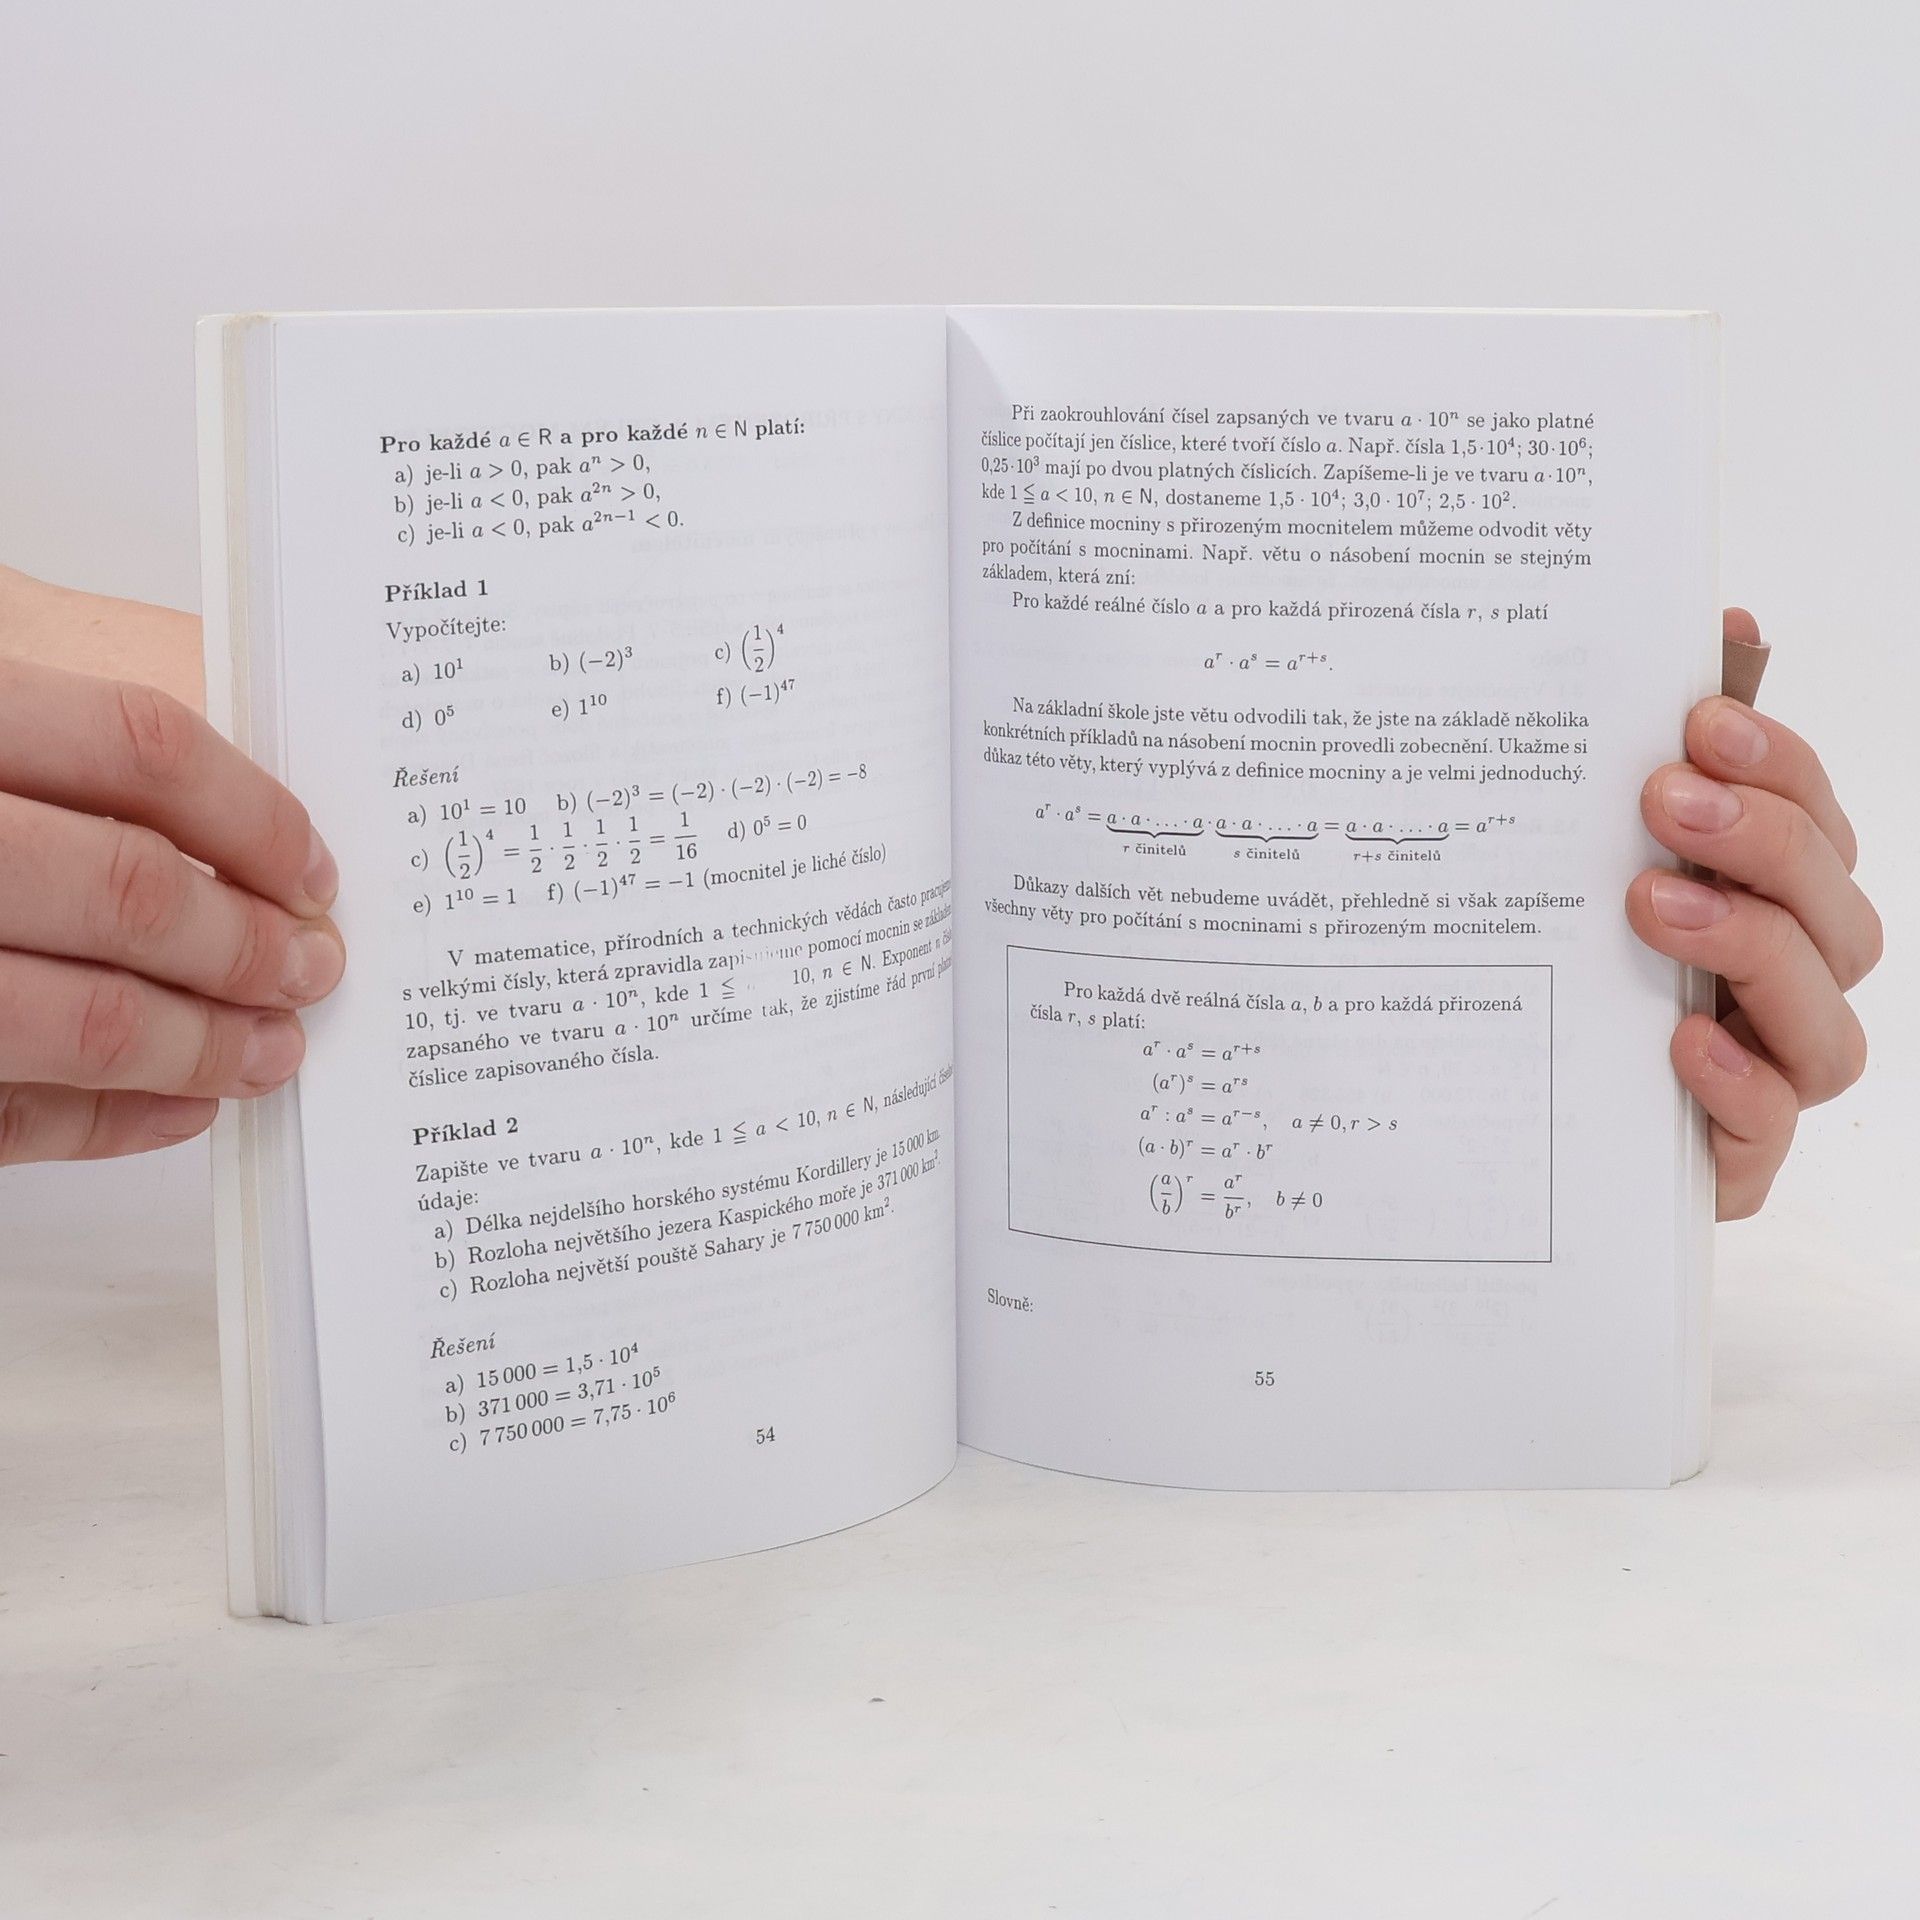 Pro každé a ∈ R a pro každé n ∈ N platí:
a) je-li a > 0, pak aⁿ > 0,
b) je-li a < 0, pak a²ⁿ > 0,
c) je-li a < 0, pak a²ⁿ⁻¹ < 0.
Příklad 1
Vypočítejte:
a) 10¹ b) (−2)³ c) (1/2)⁴
d) 0⁵ e) 1¹⁰ f) (−1)⁴⁷
Řešení
a) 10¹ = 10 b) (−2)³ = (−2) · (−2) · (−2) = −8
c) (1/2)⁴ = 1/2 · 1/2 · 1/2 · 1/2 = 1/16 d) 0⁵ = 0
e) 1¹⁰ = 1 f) (−1)⁴⁷ = −1 (mocnitel je liché číslo)
V matematice, přírodních a technických vědách často pracujeme
s velkými čísly, která zpravidla pomocí mocnin se základem
10, tj. ve tvaru a · 10ⁿ, kde 1 ≦ 10, n ∈ N. Exponent n
zapsaného ve tvaru a · 10ⁿ určíme tak, že zjistíme řád první
číslice zapisovaného čísla.
Příklad 2
Zapište ve tvaru a · 10ⁿ, kde 1 ≦ a < 10, n ∈ N, následující
údaje:
a) Délka nejdelšího horského systému Kordillery je 15 000 km.
b) Rozloha největšího jezera Kaspického moře je 371 000 km².
c) Rozloha největší pouště Sahary je 7 750 000 km².
Řešení
a) 15 000 = 1,5 · 10⁴
b) 371 000 = 3,71 · 10⁵
c) 7 750 000 = 7,75 · 10⁶
54
Při zaokrouhlování čísel zapsaných ve tvaru a · 10ⁿ se jako platné
číslice počítají jen číslice, které tvoří číslo a. Např. čísla 1,5 · 10⁴; 30 · 10⁶;
0,25 · 10³ mají po dvou platných číslicích. Zapíšeme-li je ve tvaru a · 10ⁿ,
kde 1 ≦ a < 10, n ∈ N, dostaneme 1,5 · 10⁴; 3,0 · 10⁷; 2,5 · 10².
Z definice mocniny s přirozeným mocnitelem můžeme odvodit věty
pro počítání s mocninami. Např. větu o násobení mocnin se stejným
základem, která zní:
Pro každé reálné číslo a a pro každá přirozená čísla r, s platí
aʳ · aˢ = aʳ⁺ˢ.
Na základní škole jste větu odvodili tak, že jste na základě několika
konkrétních příkladů na násobení mocnin provedli zobecnění. Ukažme si
důkaz této věty, který vyplývá z definice mocniny a je velmi jednoduchý.
aʳ · aˢ = a · a · … · a · a · a · … · a = a · a · … · a = aʳ⁺ˢ
r činitelů s činitelů r+s činitelů
Důkazy dalších vět nebudeme uvádět, přehledně si však zapíšeme
všechny věty pro počítání s mocninami s přirozeným mocnitelem.
Pro každá dvě reálná čísla a, b a pro každá přirozená
čísla r, s platí:
aʳ · aˢ = aʳ⁺ˢ
(aʳ)ˢ = aʳˢ
aʳ : aˢ = aʳ⁻ˢ, a ≠ 0, r > s
(a · b)ʳ = aʳ · bʳ
(a/b)ʳ = aʳ/bʳ, b ≠ 0
Slovně:
55